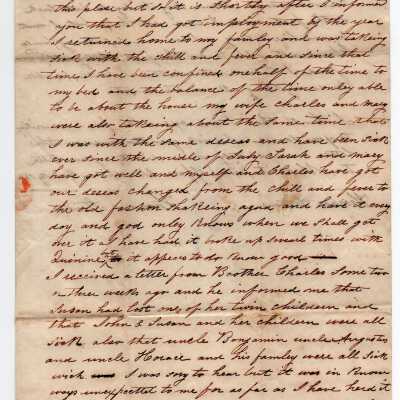 this place but so it is Shortly after I informed
you that I had got imployment by the year
I returned home to my famley and was taking
sick with the chill and fever and since that
time I have bin confined one half of the time to
my bed and the balance of the time onley able
to be about the house my wife Charles and mary
were also takeing about the same time that
I was with the same deseas and have been Sick
ever since the middle of July Sarah and mary
have got well and myself and Charles have got
our deseas changed from the chill and fever to
the old fashon shakeing agua and have it every
day and god onley knows when we shall get
over it as have had it broke up several times with
Quinine it appears to do know good
I received a letter from Brother Charles Some two
three weeks ago and he informed me that
Susan had lost one of her twin children and
that John & Susan and her children were all
Sick also that uncle Benjamin uncle Augustus
and uncle Horace and his famley were all Sick
wich I was sory to hear but it was in know
ways unexpected to me for as far as I have herd it